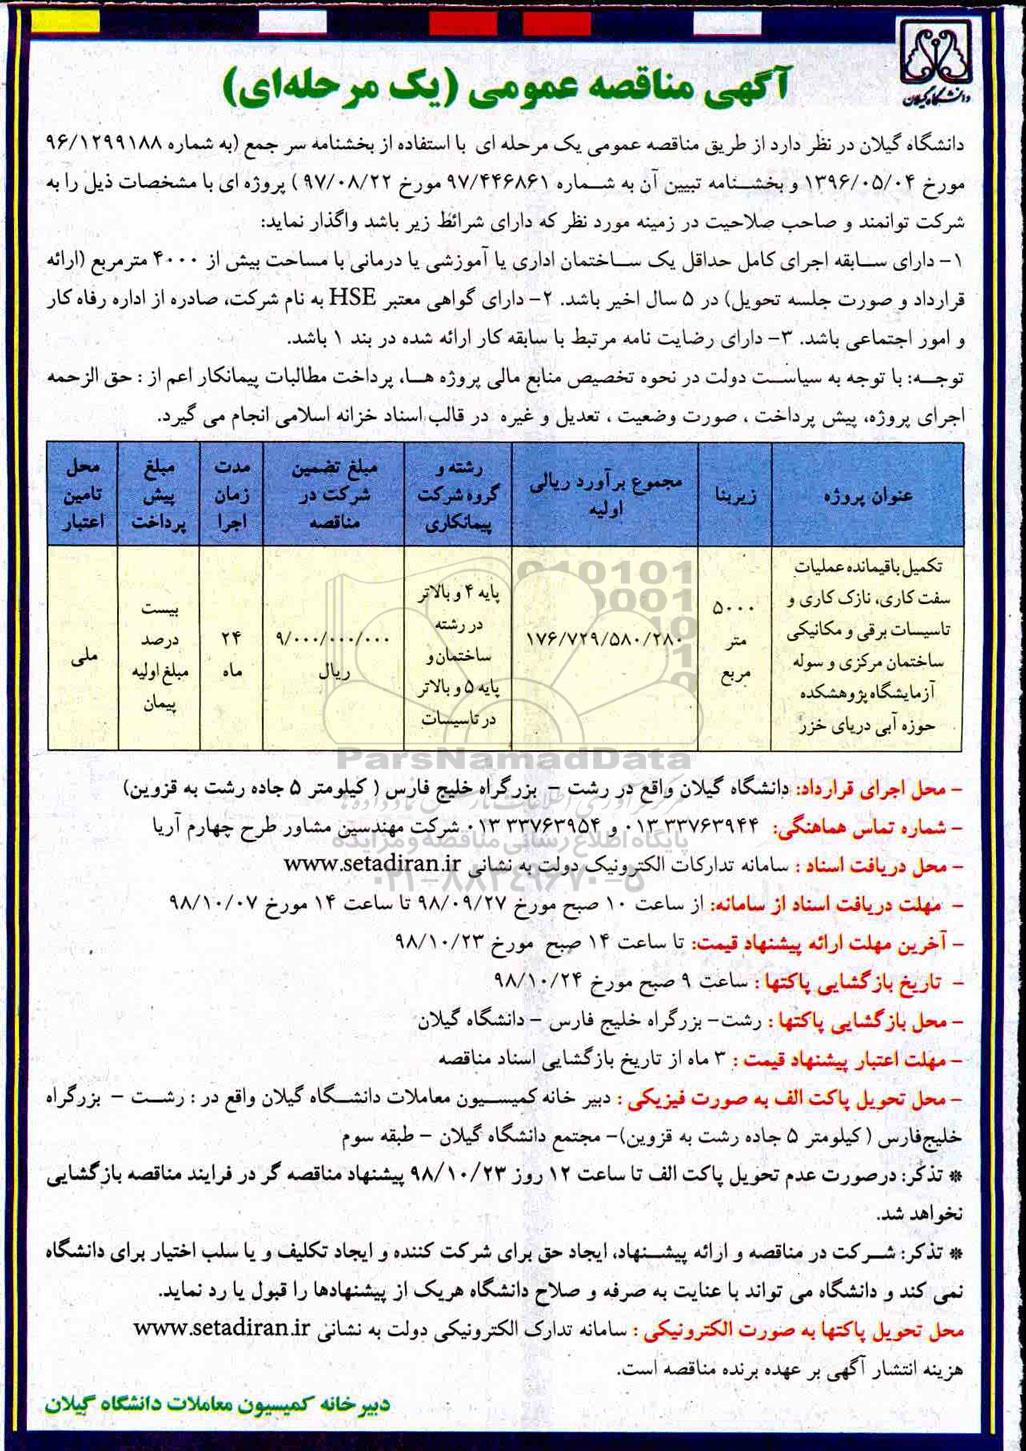 دانشگاه گیلان
آگهی مناقصه عمومی (یک مرحله‌ای)
دانشگاه گیلان در نظر دارد از طریق مناقصه عمومی یک مرحله ای با استفاده از بخشنامه سر جمع (به شماره ۹۶/۱۲۹۹۱۸۸
مورخ ۱۳۹۶/۰۵/۰۴ و بخشنامه تبیین آن به شماره ۹۷/۴۴۶۸۶۱ مورخ ۹۷/۰۸/۲۲ ) پروژه ای با مشخصات ذیل را به
شرکت توانمند و صاحب صلاحیت در زمینه مورد نظر که دارای شرائط زیر باشد واگذار نماید:
۱- دارای سابقه اجرای کامل حداقل یک ساختمان اداری یا آموزشی یا درمانی با مساحت بیش از ۴۰۰۰ مترمربع (ارائه
قرارداد و صورت جلسه تحویل) در ۵ سال اخیر باشد. ۲- دارای گواهی معتبر HSE به نام شرکت، صادره از اداره رفاه کار
و امور اجتماعی باشد. ۳- دارای رضایت نامه مرتبط با سابقه کار ارائه شده در بند ۱ باشد.
توجه: با توجه به سیاست دولت در نحوه تخصیص منابع مالی پروژه ها، پرداخت مطالبات پیمانکار اعم از : حق الزحمه
اجرای پروژه، پیش پرداخت ، صورت وضعیت ، تعدیل و غیره در قالب اسناد خزانه اسلامی انجام می گیرد.
عنوان پروژه
زیربنا
مجموع برآورد ریالی
اولیه
رشته و
گروه شرکت
پیمانکاری
مبلغ تضمین
شرکت در
مناقصه
مدت
زمان
اجرا
مبلغ
پیش
پرداخت
محل
تامین
اعتبار
تکمیل باقیمانده عملیات
سفت کاری، نازک کاری و
تاسیسات برقی و مکانیکی
ساختمان مرکزی و سوله
آزمایشگاه پژوهشکده
حوزه آبی دریای خزر
۵۰۰۰
متر
مربع
۱۷۶/۷۲۹/۵۸۰/۲۸۰
پایه ۴ و بالاتر
در رشته
ساختمان و
پایه ۵ و بالاتر
در تاسیسات
۹/۰۰۰/۰۰۰/۰۰۰
ریال
۲۴
ماه
بیست
درصد
مبلغ اولیه
پیمان
ملی
ParsNamadData
- محل اجرای قرارداد: دانشگاه گیلان واقع در رشت – بزرگراه خلیج فارس ( کیلومتر ۵ جاده رشت به قزوین)
- شماره تماس هماهنگی: ۳۳۷۶۳۹۴۴ ۰۱۳ و ۳۳۷۶۳۹۵۴ ۰۱۳ شرکت مهندسین مشاور طرح چهارم آریا
پایگاه اطلاع رسانی مناقصه و مزایده
- محل دریافت اسناد : سامانه تدارکات الکترونیک دولت به نشانی www.setadiran.ir
۰۲۱-۸۸۳۴۹۶۷۰-۵
- مهلت دریافت اسناد از سامانه: از ساعت ۱۰ صبح مورخ ۹۸/۰۹/۲۷ تا ساعت ۱۴ مورخ ۹۸/۱۰/۰۷
- آخرین مهلت ارائه پیشنهاد قیمت: تا ساعت ۱۴ صبح مورخ ۹۸/۱۰/۲۳
- تاریخ بازگشایی پاکتها : ساعت ۹ صبح مورخ ۹۸/۱۰/۲۴
- محل بازگشایی پاکتها : رشت- بزرگراه خلیج فارس – دانشگاه گیلان
- مهلت اعتبار پیشنهاد قیمت : ۳ ماه از تاریخ بازگشایی اسناد مناقصه
- محل تحویل پاکت الف به صورت فیزیکی : دبیر خانه کمیسیون معاملات دانشگاه گیلان واقع در : رشت – بزرگراه
خلیج‌فارس ( کیلومتر ۵ جاده رشت به قزوین)- مجتمع دانشگاه گیلان – طبقه سوم
* تذکر: درصورت عدم تحویل پاکت الف تا ساعت ۱۲ روز ۹۸/۱۰/۲۳ پیشنهاد مناقصه گر در فرایند مناقصه بازگشایی
نخواهد شد.
* تذکر: شرکت در مناقصه و ارائه پیشنهاد، ایجاد حق برای شرکت کننده و ایجاد تکلیف و یا سلب اختیار برای دانشگاه
نمی کند و دانشگاه می تواند با عنایت به صرفه و صلاح دانشگاه هریک از پیشنهادها را قبول یا رد نماید.
محل تحویل پاکتها به صورت الکترونیکی : سامانه تدارک الکترونیکی دولت به نشانی www.setadiran.ir
هزینه انتشار آگهی بر عهده برنده مناقصه است.
دبیرخانه کمیسیون معاملات دانشگاه گیلان